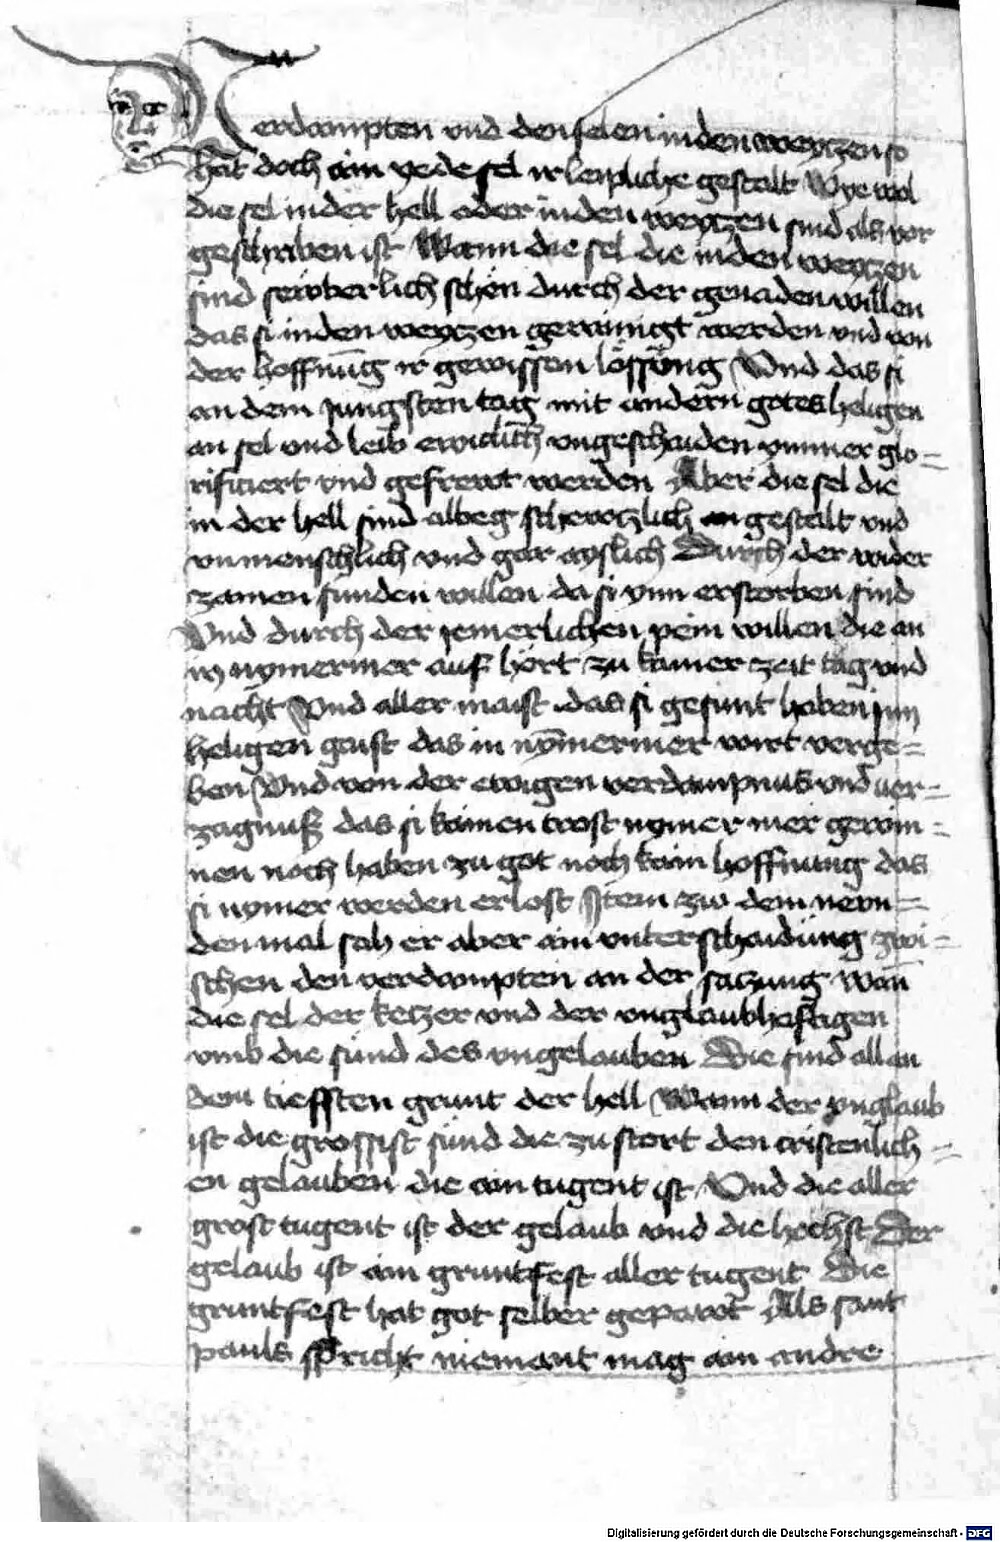 Verdampten vnd den selen in den weytzen so
hat doch ain yede sel ir leipliche gestalt Wye wol
die sel in der hell oder in den weytzen sind als vor
geschriben ist Wann die sel die in den weytzen
sind sewberlich schön durch der genaden willen
das si in den weytzen gerainigt werden vnd von
der hoffnūg ir gewissen lössūng Vnd das si
an dem jungsten tag mit andern gotes heligen
an sel vnd leib ewiclich vngeschaiden ymmer glo=
rificiert vnd gefrewt werden Aber die sel die
in der hell sind albeg schewtzlich an gestalt vnd
vnmenschlich vnd gar ayslich Durch der wider
zamen sunden willen da si ynn erstorben sind
Vnd durch der jemerlichen pein willen die an
in nymermer auf hört zu kainer zeit tag vnd
nacht Vnd aller maist das si gesunt haben inn
heligen geist das in nȳmermer wirt verge=
ben Vnd von der ewigen verdampnus vnd ver=
zagnuß das si kainen trost nymer mer gewin=
nen noch haben zu got noch kain hoffnung das
si nymer werden erlost Item zw dem newn=
den mal sach er aber ain vnterschaidung zwi=
schen den verdampten an der satzung wan̄
die sel der ketzer vnd der vnglaubhaftigen
vmb die sünd des vngelauben Die sind all an
dem tieffsten grunt der hell Wann der vnglaub
ist die grossist sünd die zustort den cristenlich=
en gelauben die ain tugent ist Vnd die aller
grost tugent ist der gelaub vnd die hochst Der
gelaub ist ain gruntfest aller tugent Die
gruntfest hat got selber gepawt Als sant
pauls spricht niemant mag ain andre
Digitalisierung gefördert durch die Deutsche Forschungsgemeinschaft - DFG